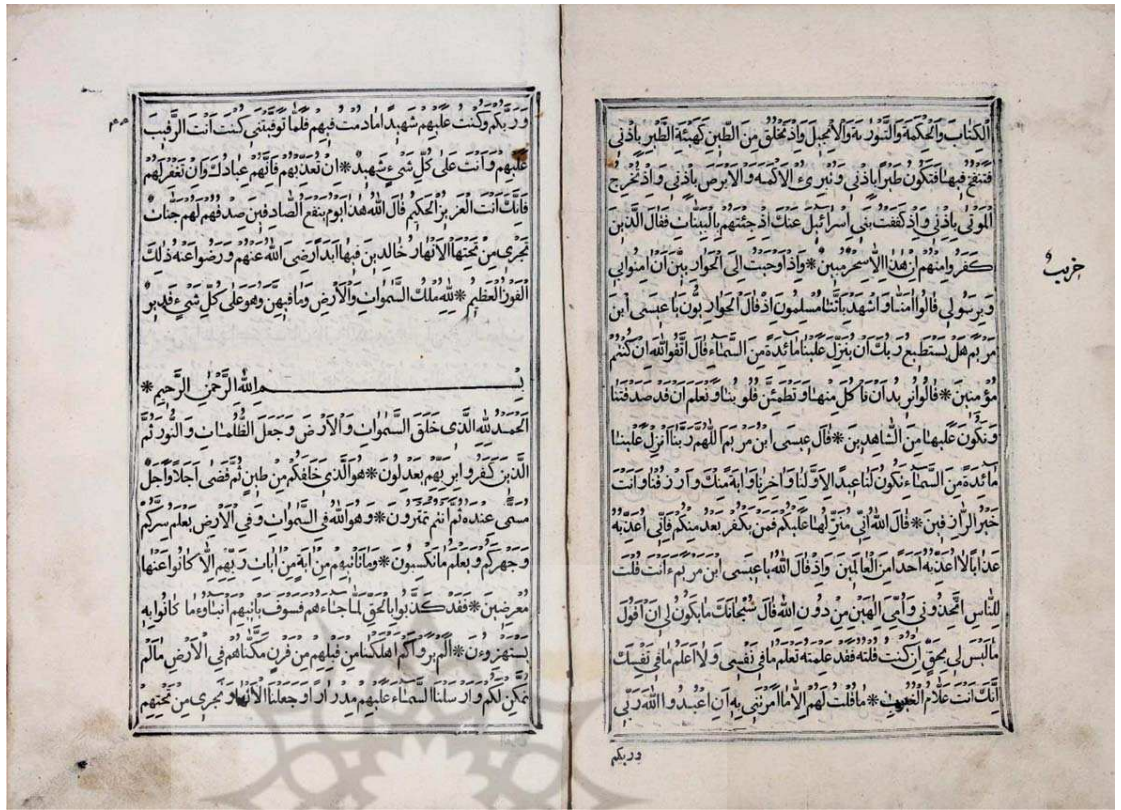 اَلْكِتَابَ وَالْحِكْمَةَ وَالتَّوْرٰيةَ وَالْاِنْجِيلَ وَاِذْ تَخْلُقُ مِنَ الطِّينِ كَهَيْئَةِ الطَّيْرِ بِاِذْنِى
فَتَنْفُخُ فِيهَا فَتَكُونُ طَيْرًا بِاِذْنِى وَتُبْرِئُ الْاَكْمَهَ وَالْاَبْرَصَ بِاِذْنِى وَاِذْ تُخْرِجُ
الْمَوْتٰى بِاِذْنِى وَاِذْ كَفَفْتُ بَنِى اِسْرَائِيلَ عَنْكَ اِذْ جِئْتَهُمْ بِالْبَيِّنَاتِ فَقَالَ الَّذِينَ
كَفَرُوا مِنْهُمْ اِنْ هٰذَا اِلَّا سِحْرٌ مُبِينٌ * وَاِذْ اَوْحَيْتُ اِلَى الْحَوَارِيِّينَ اَنْ اٰمِنُوا بِى
وَبِرَسُولِى قَالُوا اٰمَنَّا وَاشْهَدْ بِاَنَّنَا مُسْلِمُونَ اِذْ قَالَ الْحَوَارِيُّونَ يَا عِيسَى ابْنَ
مَرْيَمَ هَلْ يَسْتَطِيعُ رَبُّكَ اَنْ يُنَزِّلَ عَلَيْنَا مَائِدَةً مِنَ السَّمَاءِ قَالَ اتَّقُوا اللّٰهَ اِنْ كُنْتُمْ
مُؤْمِنِينَ * قَالُوا نُرِيدُ اَنْ نَأْكُلَ مِنْهَا وَتَطْمَئِنَّ قُلُوبُنَا وَنَعْلَمَ اَنْ قَدْ صَدَقْتَنَا
وَنَكُونَ عَلَيْهَا مِنَ الشَّاهِدِينَ * قَالَ عِيسَى ابْنُ مَرْيَمَ اللّٰهُمَّ رَبَّنَا اَنْزِلْ عَلَيْنَا
مَائِدَةً مِنَ السَّمَاءِ تَكُونُ لَنَا عِيدًا لِاَوَّلِنَا وَاٰخِرِنَا وَاٰيَةً مِنْكَ وَارْزُقْنَا وَاَنْتَ
خَيْرُ الرَّازِقِينَ * قَالَ اللّٰهُ اِنِّى مُنَزِّلُهَا عَلَيْكُمْ فَمَنْ يَكْفُرْ بَعْدُ مِنْكُمْ فَاِنِّى اُعَذِّبُهُ
عَذَابًا لَا اُعَذِّبُهُ اَحَدًا مِنَ الْعَالَمِينَ وَاِذْ قَالَ اللّٰهُ يَا عِيسَى ابْنَ مَرْيَمَ ءَاَنْتَ قُلْتَ
لِلنَّاسِ اتَّخِذُونِى وَاُمِّىَ اِلٰهَيْنِ مِنْ دُونِ اللّٰهِ قَالَ سُبْحَانَكَ مَا يَكُونُ لِى اَنْ اَقُولَ
مَا لَيْسَ لِى بِحَقٍّ اِنْ كُنْتُ قُلْتُهُ فَقَدْ عَلِمْتَهُ تَعْلَمُ مَا فِى نَفْسِى وَلَا اَعْلَمُ مَا فِى نَفْسِكَ
اِنَّكَ اَنْتَ عَلَّامُ الْغُيُوبِ * مَا قُلْتُ لَهُمْ اِلَّا مَا اَمَرْتَنِى بِهِ اَنِ اعْبُدُوا اللّٰهَ رَبِّى
حزب
وربكم
وَرَبَّكُمْ وَكُنْتُ عَلَيْهِمْ شَهِيدًا مَا دُمْتُ فِيهِمْ فَلَمَّا تَوَفَّيْتَنِى كُنْتَ اَنْتَ الرَّقِيبَ
عَلَيْهِمْ وَاَنْتَ عَلٰى كُلِّ شَىْءٍ شَهِيدٌ * اِنْ تُعَذِّبْهُمْ فَاِنَّهُمْ عِبَادُكَ وَاِنْ تَغْفِرْ لَهُمْ
فَاِنَّكَ اَنْتَ الْعَزِيزُ الْحَكِيمُ قَالَ اللّٰهُ هٰذَا يَوْمُ يَنْفَعُ الصَّادِقِينَ صِدْقُهُمْ لَهُمْ جَنَّاتٌ
تَجْرِى مِنْ تَحْتِهَا الْاَنْهَارُ خَالِدِينَ فِيهَا اَبَدًا رَضِىَ اللّٰهُ عَنْهُمْ وَرَضُوا عَنْهُ ذٰلِكَ
الْفَوْزُ الْعَظِيمُ * لِلّٰهِ مُلْكُ السَّمٰوَاتِ وَالْاَرْضِ وَمَا فِيهِنَّ وَهُوَ عَلٰى كُلِّ شَىْءٍ قَدِيرٌ
بِسْمِ اللّٰهِ الرَّحْمٰنِ الرَّحِيمِ *
اَلْحَمْدُ لِلّٰهِ الَّذِى خَلَقَ السَّمٰوَاتِ وَالْاَرْضَ وَجَعَلَ الظُّلُمَاتِ وَالنُّورَ ثُمَّ
الَّذِينَ كَفَرُوا بِرَبِّهِمْ يَعْدِلُونَ * هُوَ الَّذِى خَلَقَكُمْ مِنْ طِينٍ ثُمَّ قَضٰى اَجَلًا وَاَجَلٌ
مُسَمًّى عِنْدَهُ ثُمَّ اَنْتُمْ تَمْتَرُونَ * وَهُوَ اللّٰهُ فِى السَّمٰوَاتِ وَفِى الْاَرْضِ يَعْلَمُ سِرَّكُمْ
وَجَهْرَكُمْ وَيَعْلَمُ مَا تَكْسِبُونَ * وَمَا تَأْتِيهِمْ مِنْ اٰيَةٍ مِنْ اٰيَاتِ رَبِّهِمْ اِلَّا كَانُوا عَنْهَا
مُعْرِضِينَ * فَقَدْ كَذَّبُوا بِالْحَقِّ لَمَّا جَاءَهُمْ فَسَوْفَ يَأْتِيهِمْ اَنْبَاؤُا مَا كَانُوا بِهِ
يَسْتَهْزِءُونَ * اَلَمْ يَرَوْا كَمْ اَهْلَكْنَا مِنْ قَبْلِهِمْ مِنْ قَرْنٍ مَكَّنَّاهُمْ فِى الْاَرْضِ مَا لَمْ
نُمَكِّنْ لَكُمْ وَاَرْسَلْنَا السَّمَاءَ عَلَيْهِمْ مِدْرَارًا وَجَعَلْنَا الْاَنْهَارَ تَجْرِى مِنْ تَحْتِهِمْ